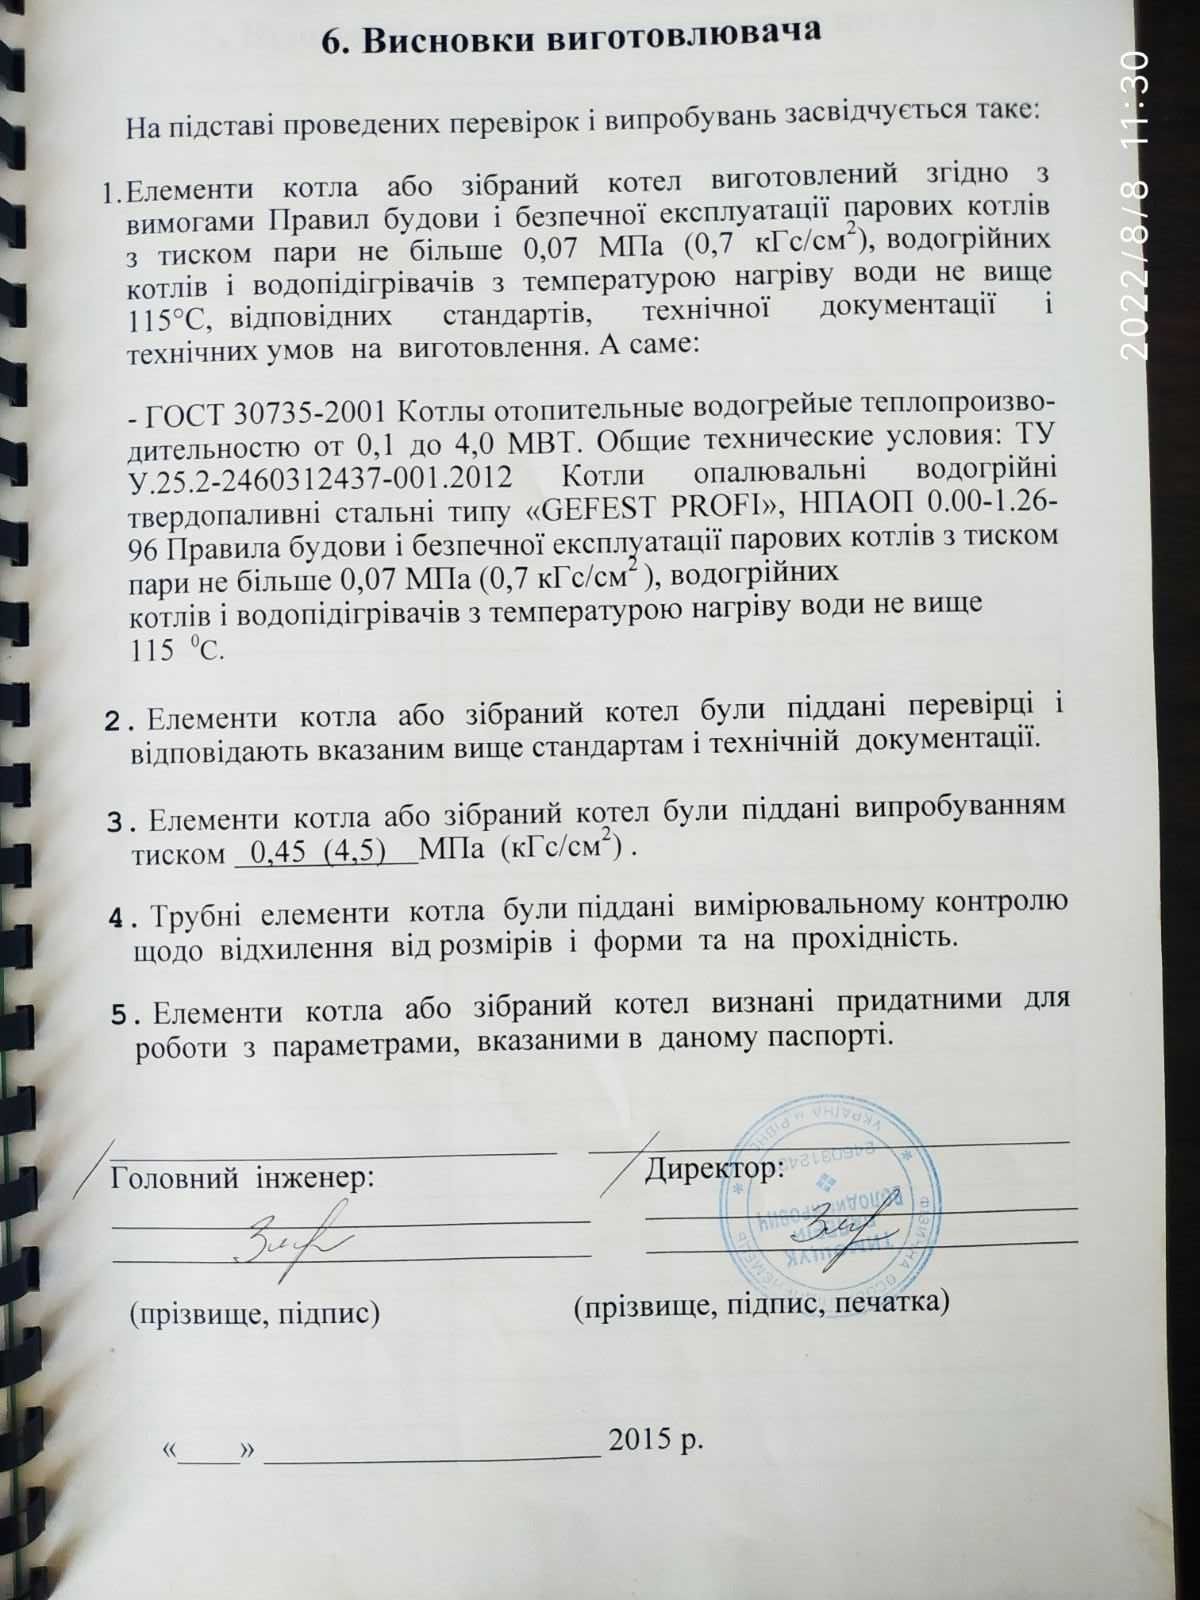 6. Висновки виготовлювача
На підставі проведених перевірок і випробувань засвідчується таке:
1. Елементи котла або зібраний котел виготовлений згідно з
вимогами Правил будови і безпечної експлуатації парових котлів
з тиском пари не більше 0,07 МПа (0,7 кГс/см²), водогрійних
котлів і водопідігрівачів з температурою нагріву води не вище
115°С, відповідних стандартів, технічної документації і
технічних умов на виготовлення. А саме:
- ГОСТ 30735-2001 Котлы отопительные водогрейые теплопроизво-
дительностю от 0,1 до 4,0 МВТ. Общие технические условия: ТУ
У.25.2-2460312437-001.2012 Котли опалювальні водогрійні
твердопаливні стальні типу «GEFEST PROFI», НПАОП 0.00-1.26-
96 Правила будови і безпечної експлуатації парових котлів з тиском
пари не більше 0,07 МПа (0,7 кГс/см²), водогрійних
котлів і водопідігрівачів з температурою нагріву води не вище
115 ⁰С.
2. Елементи котла або зібраний котел були піддані перевірці і
відповідають вказаним вище стандартам і технічній документації.
3. Елементи котла або зібраний котел були піддані випробуванням
тиском 0,45 (4,5) МПа (кГс/см²).
4. Трубні елементи котла були піддані вимірювальному контролю
щодо відхилення від розмірів і форми та на прохідність.
5. Елементи котла або зібраний котел визнані придатними для
роботи з параметрами, вказаними в даному паспорті.
Головний інженер:
Директор:
УКРАЇНА м РІВНЕ
ФІЗИЧНА ОСОБА
ТИМОЩУК
ВОЛОДИМИРОВИЧ
(прізвище, підпис)
(прізвище, підпис, печатка)
«____» ____________________ 2015 р.
2022/8/8 11:30